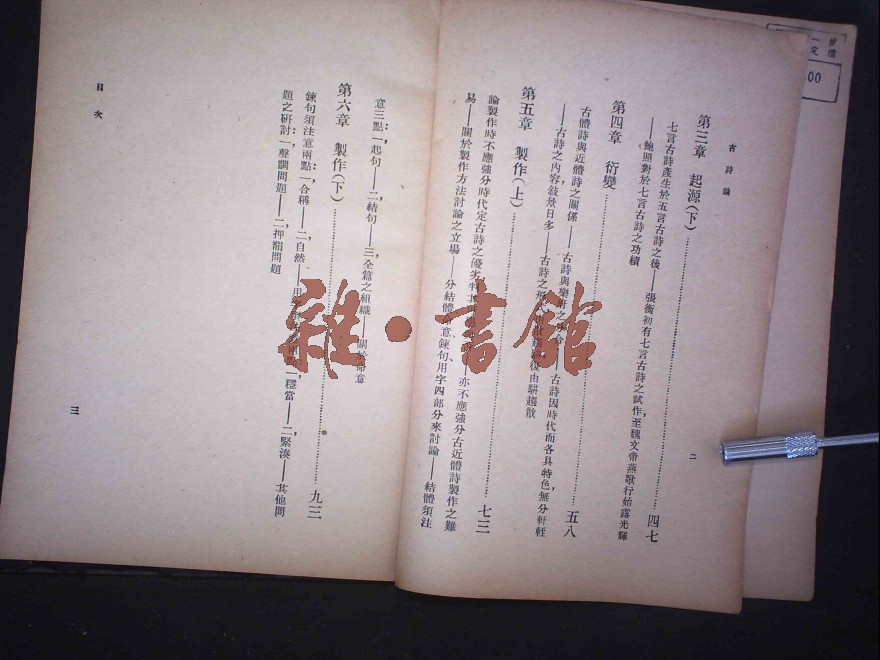 古詩論
第三章 起源(下)……四七
七言古詩產生於五言古詩之後——張衡初有七言古詩之試作，至魏文帝燕歌行始露光輝
——鮑照對於七言古詩之功績
第四章 衍變……五八
古體詩與近體詩之關係——古詩與樂府之
——古詩因時代而各具特色，無分軒輊
——古詩之內容，敍景日多——古詩之形
後由駢趨散
第五章 製作(上)……七三
論製作時不應強分時代定古詩之優劣
亦不應強分古近體詩製作之難
易——關於製作方法討論之立場——分結體
意、鍊句、用字四部分來討論——結體須注
二
意三點：一，起句——二，結句——三，全篇之組織——關於命意
第六章 製作(下)……九三
鍊句須注意兩點：一，合稱——二，自然——用
一，穩當——二，緊湊——其他問
題之研討：一，聲調問題——二，押韻問題
目次
三
雜·書館
.00